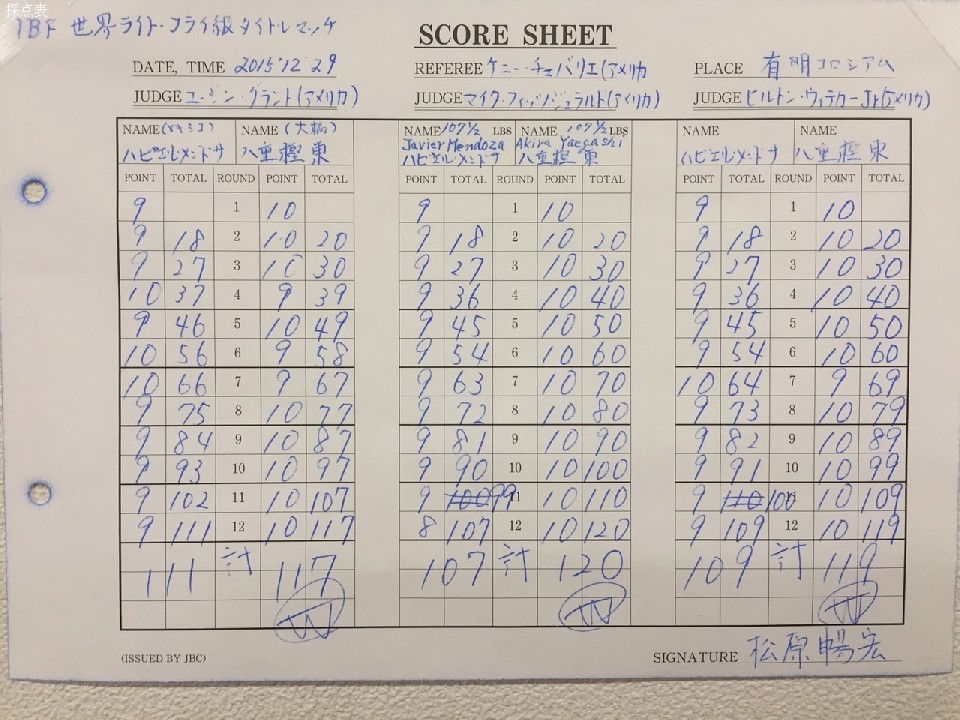 採点表
IBF 世界ライト・フライ級タイトルマッチ
SCORE SHEET
DATE, TIME 2015 12 29 REFEREE ケニー・チェバリエ(アメリカ PLACE 有明コロシアム
JUDGE ユージン・グラント(アメリカ) JUDGE マイク・フィッツジェラルド(アメリカ) JUDGE ヒルトン・ウィテカーJr(アメリカ)
NAME (メキシコ) NAME (大橋) NAME 107 1/2 LBS NAME 107 1/2 LBS NAME NAME
Javier Mendoza Akira Yaegashi
ハビエル・メンドサ 八重樫 東 ハビエル・メンドサ 八重樫 東 ハビエル・メンドサ 八重樫 東
POINT TOTAL ROUND POINT TOTAL POINT TOTAL ROUND POINT TOTAL POINT TOTAL ROUND POINT TOTAL
9 1 10 9 1 10 9 1 10
9 18 2 10 20 9 18 2 10 20 9 18 2 10 20
9 27 3 10 30 9 27 3 10 30 9 27 3 10 30
10 37 4 9 39 9 36 4 10 40 9 36 4 10 40
9 46 5 10 49 9 45 5 10 50 9 45 5 10 50
10 56 6 9 58 9 54 6 10 60 9 54 6 10 60
10 66 7 9 67 9 63 7 10 70 10 64 7 9 69
9 75 8 10 77 9 72 8 10 80 9 73 8 10 79
9 84 9 10 87 9 81 9 10 90 9 82 9 10 89
9 93 10 10 97 9 90 10 10 100 9 91 10 10 99
9 102 11 10 107 9 100 99 11 10 110 9 110 100 11 10 109
9 111 12 10 117 8 107 12 10 120 9 109 12 10 119
111 計 117 107 計 120 109 計 119
W W W
(ISSUED BY JBC) SIGNATURE 松原暢宏